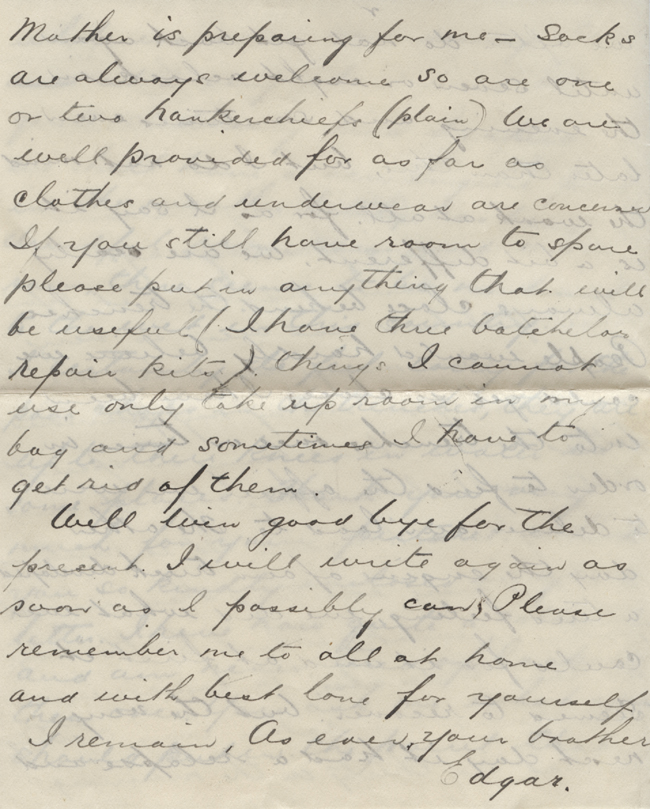 Mother is preparing for me — Socks
are always welcome so are one
or two hankerchiefs (plain) We are
well provided for as far as
clothes and underwear are concerned
If you still have room to spare
please put in anything that will
be useful (I have three batchelor
repair kits) things I cannot
use only take up room in my
bag and sometimes I have to
get rid of them.
Well good bye for the
present. I will write again as
soon as I possibly can; Please
remember me to all at home
and with best love for yourself
I remain, As ever, your brother
Edgar.